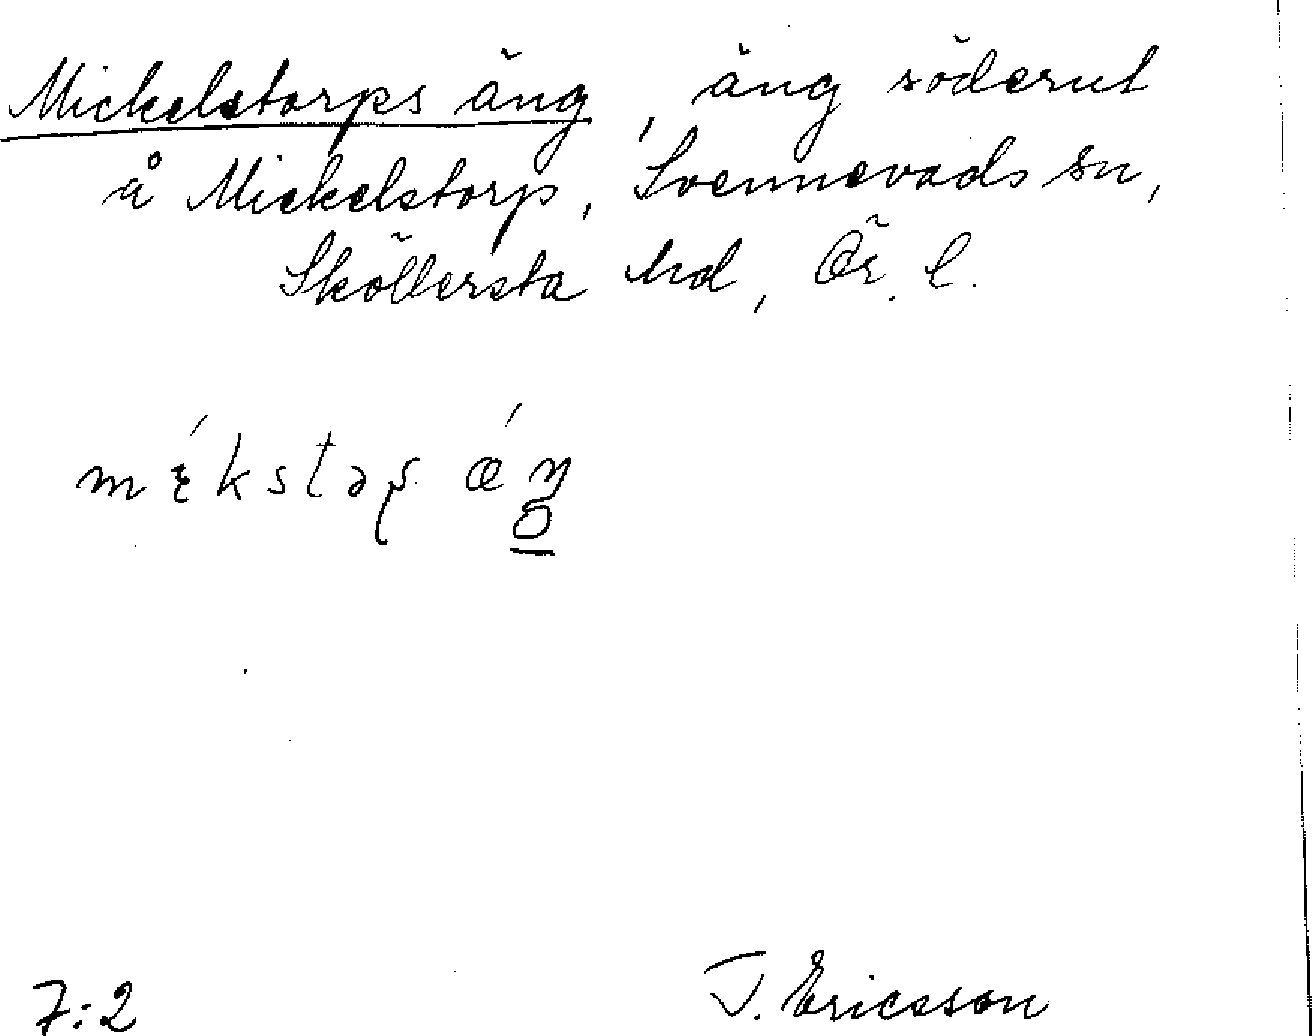 Mickelstorps äng, äng söderut
å Mickelstorp, Svennevads sn,
Sköllersta hd, Ör. l.
7:2
J. Ericsson